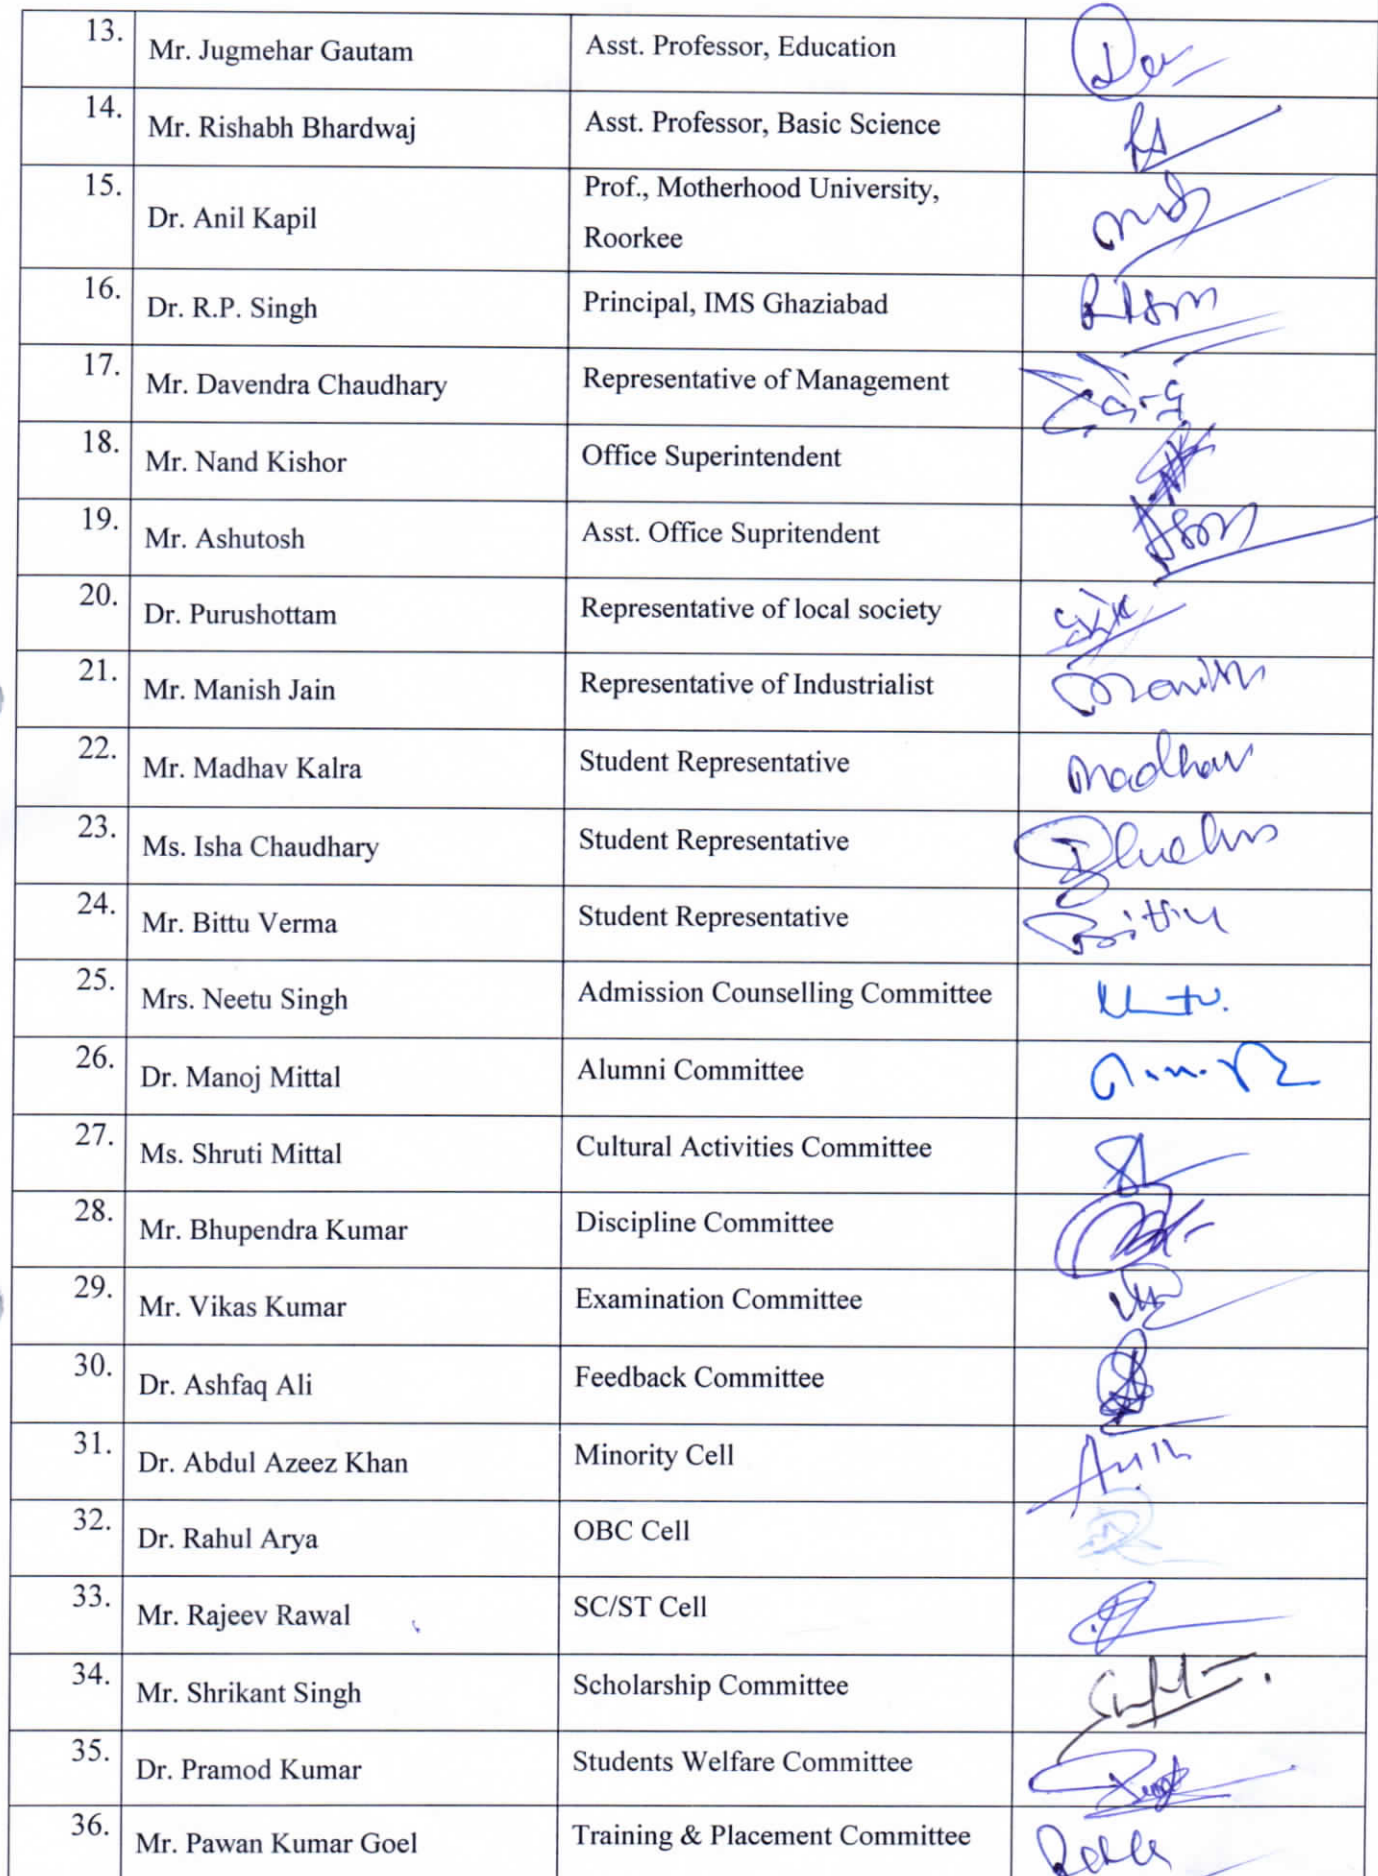 13. Mr. Jugmehar Gautam Asst. Professor, Education
14. Mr. Rishabh Bhardwaj Asst. Professor, Basic Science
15. Dr. Anil Kapil Prof., Motherhood University,
Roorkee
16. Dr. R.P. Singh Principal, IMS Ghaziabad
17. Mr. Davendra Chaudhary Representative of Management
18. Mr. Nand Kishor Office Superintendent
19. Mr. Ashutosh Asst. Office Supritendent
20. Dr. Purushottam Representative of local society
21. Mr. Manish Jain Representative of Industrialist
22. Mr. Madhav Kalra Student Representative Madhav
23. Ms. Isha Chaudhary Student Representative
24. Mr. Bittu Verma Student Representative Bittu
25. Mrs. Neetu Singh Admission Counselling Committee
26. Dr. Manoj Mittal Alumni Committee
27. Ms. Shruti Mittal Cultural Activities Committee
28. Mr. Bhupendra Kumar Discipline Committee
29. Mr. Vikas Kumar Examination Committee
30. Dr. Ashfaq Ali Feedback Committee
31. Dr. Abdul Azeez Khan Minority Cell
32. Dr. Rahul Arya OBC Cell
33. Mr. Rajeev Rawal SC/ST Cell
34. Mr. Shrikant Singh Scholarship Committee
35. Dr. Pramod Kumar Students Welfare Committee
36. Mr. Pawan Kumar Goel Training & Placement Committee